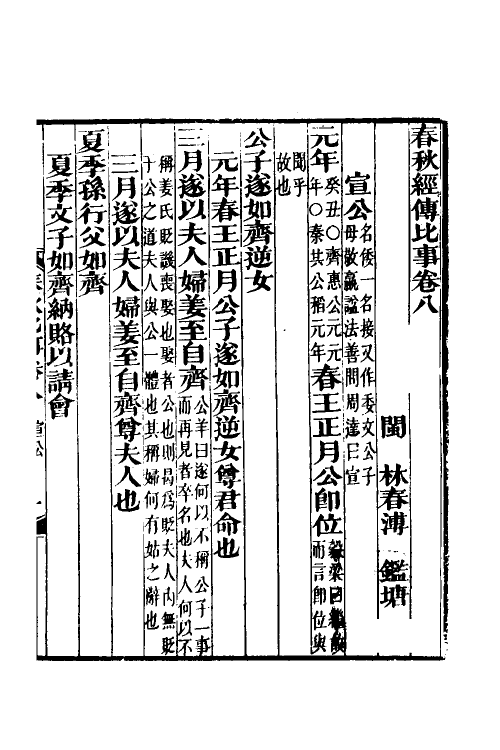 春秋經傳比事卷八
閩 林春溥 鑑塘
宣公 名倭一名接又作委文公子
母敬嬴諡法善問周達曰宣
元年 癸丑○齊惠公元元
年○秦共公稻元年 春王正月公卽位 穀梁曰繼故
而言卽位與
聞乎
故也
公子遂如齊逆女
元年春王正月公子遂如齊逆女尊君命也
三月遂以夫人婦姜至自齊 公羊曰遂何以不稱公子一事
而再見者卒名也夫人何以不
稱姜氏貶譏喪娶也娶者公也則曷爲貶夫人內無貶
于公之道夫人與公一體也其稱婦何有姑之辭也
三月遂以夫人婦姜至自齊尊夫人也
夏季孫行父如齊
夏季文子如齊納賂以請會
宣公